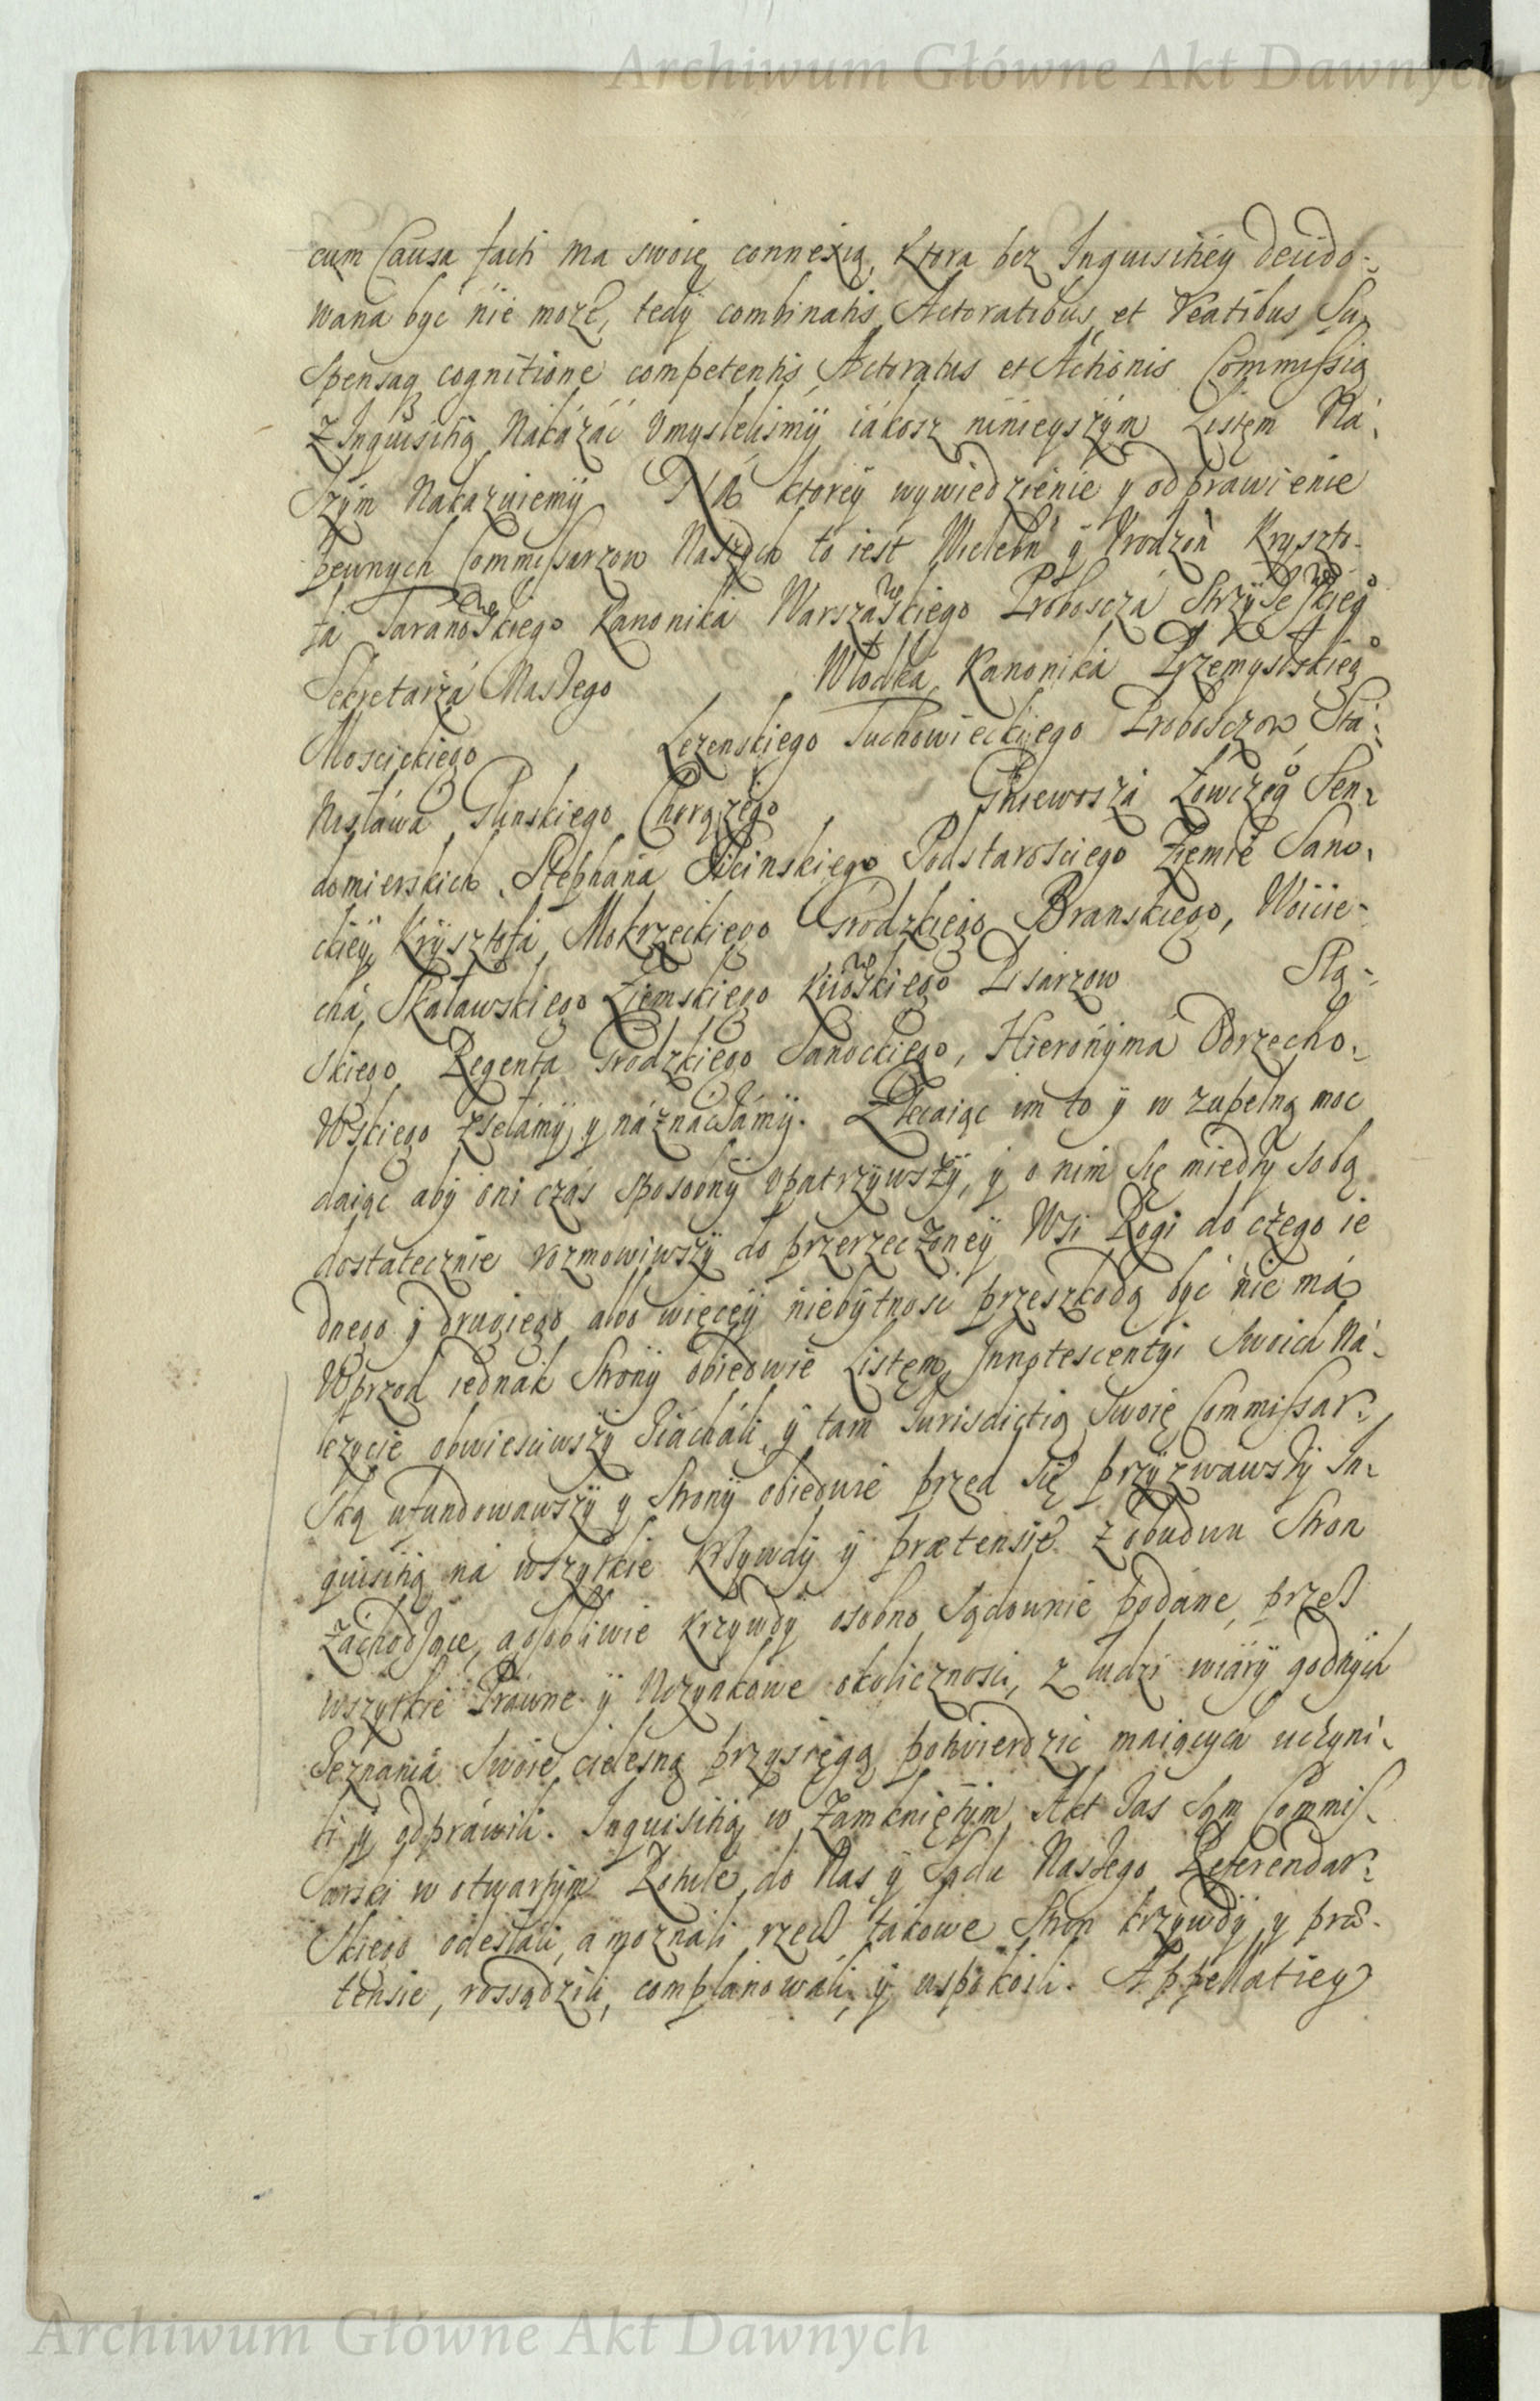 Archiwum Główne Akt Dawnych
cum Causa facti ma swoię connexią, ktora bez Inquisitiéy decido-
wana być nie może, tedy combinatis Actoratibus et Reatibus Su,
spensaq cognitione competentis Actoratus et Actionis Commissią
z Inquisitią Nakázáć Vmysleliśmÿ iákosz ninieyszÿm Listęm Ná,
szÿm Nakazuiemÿ. NA ktoreÿ wywiedzienie y odprawienie
pewnych Commissarzow Naszych to iest Wielebn ÿ Vrodzon Kryszto-
fa Taranowskiego Kanonika Warszawskiego Proboscza
Sekretarza Naszego Włodka Kanonika Przemyslskieg
Moscickiego Lezenskiego Tuchowieckiego Proboszczow Stá,
nisława Glinskiego Chorążego Gniewosza Łowczeg Sen,
domierskich Stephana Podstarosciego Ziemie Sano,
ckieÿ, Krÿsztofa Mokrzeckiego Grodzkiego Branskiego, Woicie-
cha Skaławskiego Ziemskiego Kiiowskiego Pisarzow Stą-
skiego Regenta Grodzkiego Sanockiego, Hieronÿma Orzecho,
wskiego zsełamÿ y náznáczámÿ. Zlecaiąc im to ÿ w zupełną moc
daiąc abÿ oni czás sposobnÿ vpatrzÿwszÿ, ÿ o nim się miedzy sobą
dostatecznie rozmowiwszÿ do przerzeczoneÿ Wsi Rogi do czego ie
dnego ÿ drugiego albo więceÿ niebÿtnosć przeszkodą być nie má
Wprzod iednak Stronÿ obiedwie Listęm Innotescentÿi Swoich Ná,
lezycie obwiesciwszÿ ziácháli, ÿ tam Iurisdictią Swoię Commissar,
ską ufundowawszÿ y Stronÿ obiedwie przed Się przÿzwawszÿ In,
quisitią ná wszytkie krzywdÿ ÿ prætensie z obudwu Stron
záchodzące, a osobliwie krzywdÿ osobno Sądownie podane, przez
wszytkie Prawne ÿ Uczynkowe okolicznosci, z ludzi wiárÿ godnÿch
Zeznania Swoie cielesną przysięgą potwierdzić maiących uczyni,
li ÿ odprawili. Inquisitią w Zamkniętÿm, Akt zas Sąm Commis,
sarski w otwartÿm Rotule do Nas ÿ Sądu Naszego Referendar,
skiego odesłali, a moznali rzecz takowe Stron krzywdÿ y præ-
tensie, rossądzili, complanowali ÿ uspokoili. Appellatieÿ
Archiwum Główne Akt Dawnych